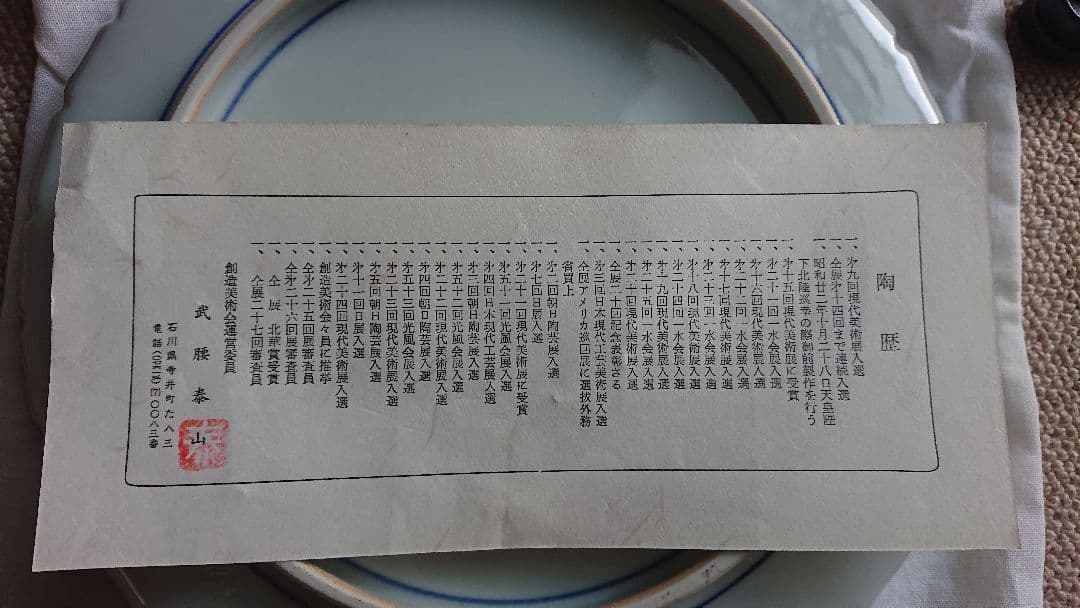 陶歴
一、第九回現代美術展入選
一、仝展第十四回まで連続入選
一、昭和廿二年十月二十八日天皇陛
下北陸巡幸の際御前製作を行う
一、第十五回現代美術展に受賞
一、第二十一回一水会展入選
一、第十六回現代美術展入選
一、第二十二回一水会展入選
一、第十七回現代美術展入選
一、第二十三回一水会展入選
一、第十八回現代美術展入選
一、第二十四回一水会展入選
一、第十九回現代美術展入選
一、第二十五回一水会展入選
一、第二十回現代美術展入選
一、仝展二十回記念表彰さる
一、第三回日本現代工芸美術展入選
一、仝展アメリカ巡回展に選抜外務
省買上
一、第二回朝日陶芸展入選
一、第七回日展入選
一、第二十一回現代美術展に受賞
一、第五十一回光風会展入選
一、第四回日本現代工芸展入選
一、第三回朝日陶芸展入選
一、第五十二回光風会展入選
一、第二十二回現代美術展入選
一、第四回朝日陶芸展入選
一、第五十三回光風会展入選
一、第二十三回現代美術展入選
一、第五回朝日陶芸展入選
一、第十一回日展入選
一、第二十四回現代美術展入選
一、創造美術会々員に推挙
一、仝第二十五回展審査員
一、仝第二十六回展審査員
一、仝展 北華賞受賞
一、仝展二十七回審査員
創造美術会運営委員
武腰泰山
石川県寺井町た八三